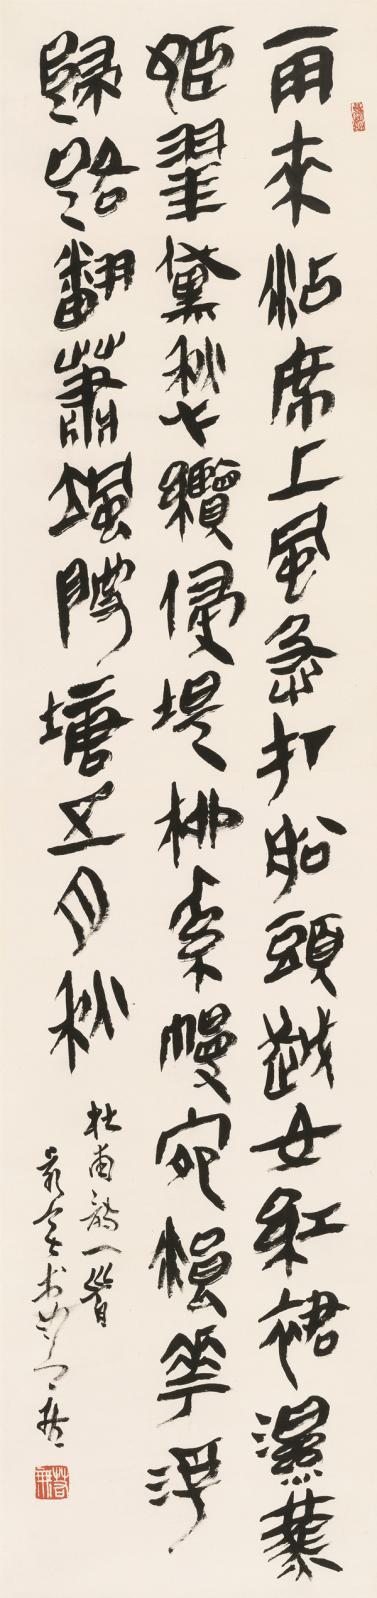 雨來沾席上風急打船頭越女紅裙濕燕
姬翠黛愁纜侵堤柳系幔宛浪花浮
歸路翻蕭颯陂塘五月秋
杜甫詩一首